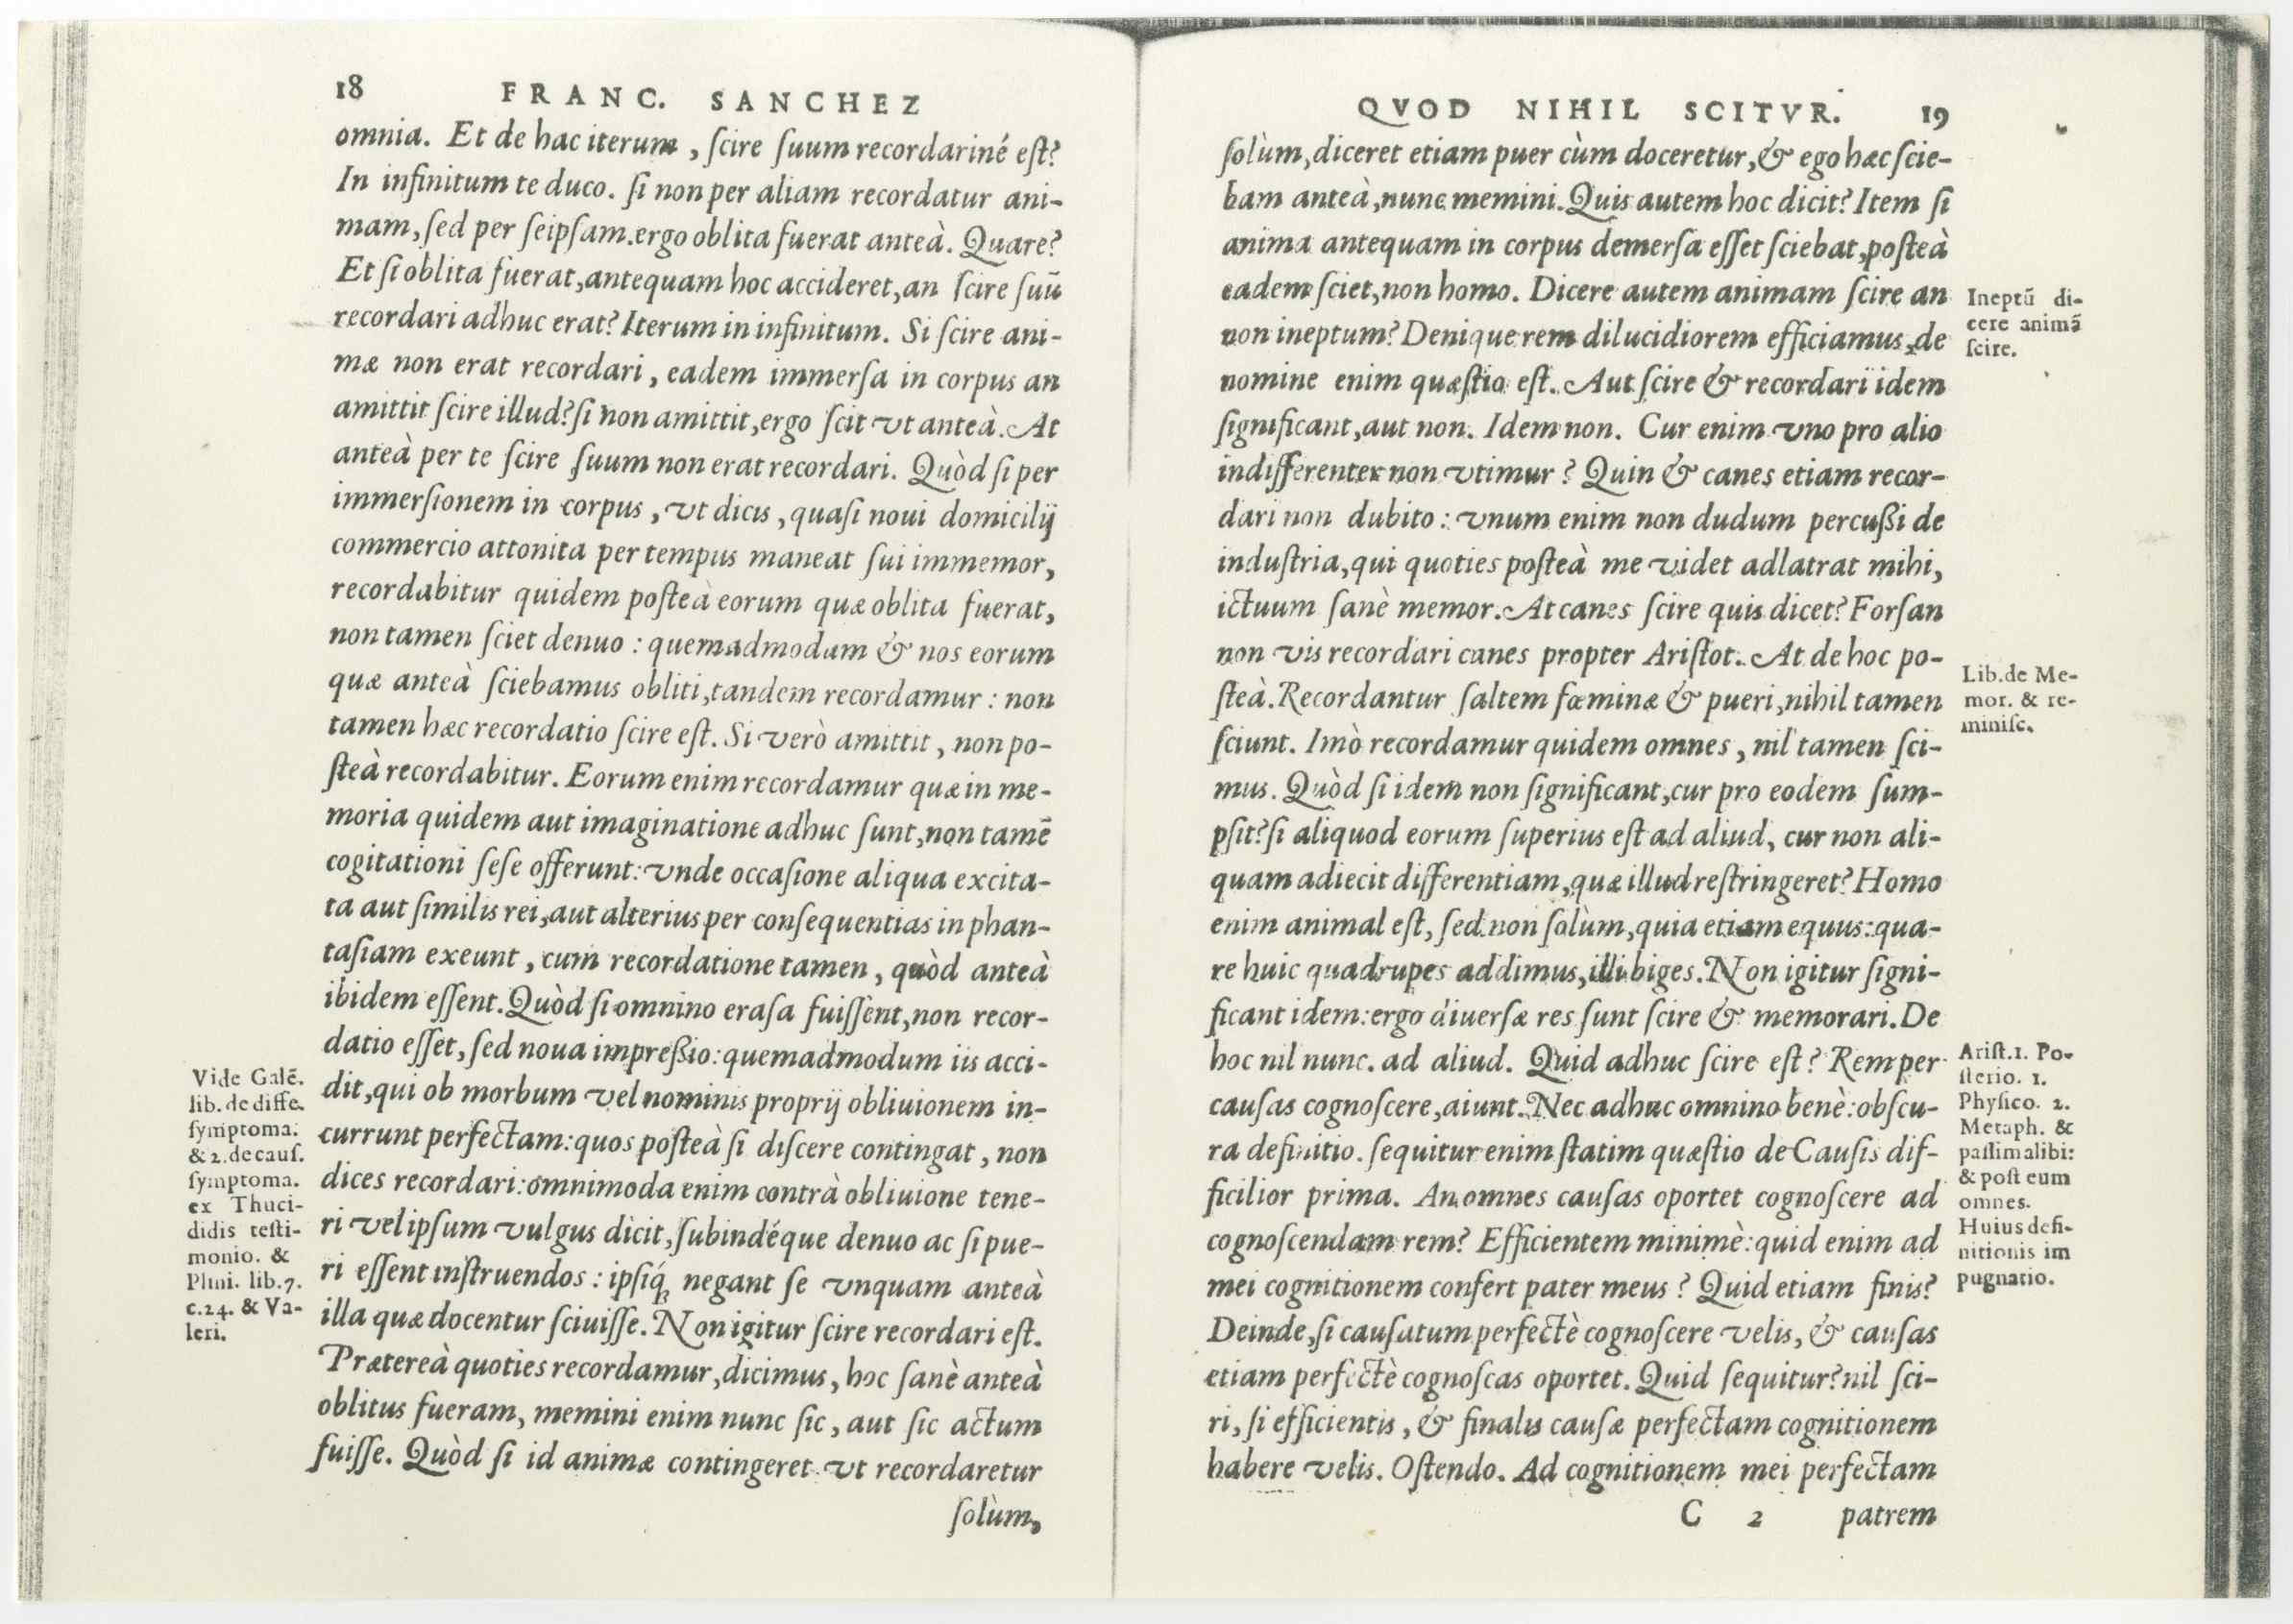 18 FRANC. SANCHEZ
omnia. Et de hac iterum, ſcire ſuum recordariné eſt?
In infinitum te duco. ſi non per aliam recordatur ani-
mam, ſed per ſeipſam. ergo oblita fuerat anteà. Quare?
Et ſi oblita fuerat, antequam hoc accideret, an ſcire ſuũ
recordari adhuc erat? Iterum in infinitum. Si ſcire ani-
mæ non erat recordari, eadem immerſa in corpus an
amittit ſcire illud? ſi non amittit, ergo ſcit vt anteà. At
anteà per te ſcire ſuum non erat recordari. Quòd ſi per
immerſionem in corpus, vt dicis, quaſi noui domicilij
commercio attonita per tempus maneat ſui immemor,
recordabitur quidem poſteà eorum quæ oblita fuerat,
non tamen ſciet denuo: quemadmodum & nos eorum
quæ anteà ſciebamus obliti, tandem recordamur: non
tamen hæc recordatio ſcire eſt. Si verò amittit, non po-
ſteà recordabitur. Eorum enim recordamur quæ in me-
moria quidem aut imaginatione adhuc ſunt, non tamẽ
cogitationi ſeſe offerunt: vnde occaſione aliqua excita-
ta aut ſimilis rei, aut alterius per conſequentias in phan-
taſiam exeunt, cum recordatione tamen, quòd anteà
ibidem eſſent. Quòd ſi omnino eraſa fuiſſent, non recor-
datio eſſet, ſed noua impreßio: quemadmodum iis acci-
dit, qui ob morbum vel nominis proprij obliuionem in-
currunt perfectam: quos poſteà ſi diſcere contingat, non
dices recordari: omnimoda enim contrà obliuione tene-
ri vel ipſum vulgus dicit, ſubindéque denuo ac ſi pue-
ri eſſent inſtruendos: ipſiq́; negant ſe vnquam anteà
illa quæ docentur ſciuiſſe. Non igitur ſcire recordari eſt.
Prætereà quoties recordamur, dicimus, hoc ſanè anteà
oblitus fueram, memini enim nunc ſic, aut ſic actum
fuiſſe. Quòd ſi id animæ contingeret vt recordaretur
ſolùm,
Vide Galẽ.
lib. de diffe.
ſymptoma.
& 2. de cauſ.
ſymptoma.
ex Thuci-
didis teſti-
monio. &
Plini. lib. 7.
c. 24. & Va-
leri.
QVOD NIHIL SCITVR. 19
ſolùm, diceret etiam puer cùm doceretur, & ego hæc ſcie-
bam anteà, nunc memini. Quis autem hoc dicit? Item ſi
anima antequam in corpus demerſa eſſet ſciebat, poſteà
eadem ſciet, non homo. Dicere autem animam ſcire an
non ineptum? Denique rem dilucidiorem efficiamus, de
nomine enim quæſtio eſt. Aut ſcire & recordari idem
ſignificant, aut non. Idem non. Cur enim vno pro alio
indifferenter non vtimur? Quin & canes etiam recor-
dari non dubito: vnum enim non dudum percußi de
induſtria, qui quoties poſteà me videt adlatrat mihi,
ictuum ſanè memor. At canes ſcire quis dicet? Forſan
non vis recordari canes propter Ariſtot. At de hoc po-
ſteà. Recordantur ſaltem fœminæ & pueri, nihil tamen
ſciunt. Imò recordamur quidem omnes, nil tamen ſci-
mus. Quòd ſi idem non ſignificant, cur pro eodem ſum-
pſit? ſi aliquod eorum ſuperius eſt ad aliud, cur non ali-
quam adiecit differentiam, quæ illud reſtringeret? Homo
enim animal eſt, ſed non ſolùm, quia etiam equus: qua-
re huic quadrupes addimus, illi biges. Non igitur ſigni-
ficant idem: ergo diuerſæ res ſunt ſcire & memorari. De
hoc nil nunc. ad aliud. Quid adhuc ſcire eſt? Rem per
cauſas cognoſcere, aiunt. Nec adhuc omnino benè: obſcu-
ra definitio. ſequitur enim ſtatim quæſtio de Cauſis dif-
ficilior prima. An omnes cauſas oportet cognoſcere ad
cognoſcendam rem? Efficientem minimè: quid enim ad
mei cognitionem confert pater meus? Quid etiam finis?
Deinde, ſi cauſatum perfectè cognoſcere velis, & cauſas
etiam perfectè cognoſcas oportet. Quid ſequitur? nil ſci-
ri, ſi efficientis, & finalis cauſæ perfectam cognitionem
habere velis. Oſtendo. Ad cognitionem mei perfectam
C 2 patrem
Ineptũ di-
cere animã
ſcire.
Lib. de Me-
mor. & re-
miniſc.
Ariſt. 1. Po-
ſterio. 1.
Phyſico. 2.
Metaph. &
paſſim alibi:
& poſt eum
omnes.
Huius defi-
nitionis im
pugnatio.